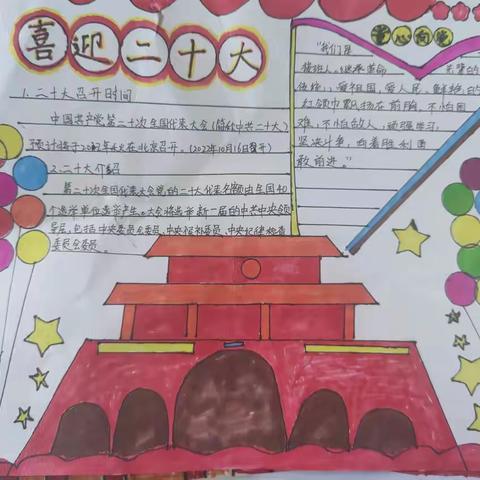 喜迎二十大
1.二十大召开时间
中国共产党第二十次全国代表大会(简称中共二十大)
预计将于2022年下半年在北京召开。(2022年10月16日召开)
2.二十大介绍
第二十次全国代表大会党的二十大代表名额由全国
个选举单位选举产生。大会将选举新一届的中共中央领
导层,包括中央委员会委员、中央候补委员、中央纪律检查
委员会委员。
童心向党
"我们是
接班人。继承革命 先辈的
传统,爱祖国,爱人民,鲜艳的
红领巾飘扬在前胸,不怕困
难,不怕敌人,顽强学习,
坚决斗争,向着胜利勇
敢前进。"